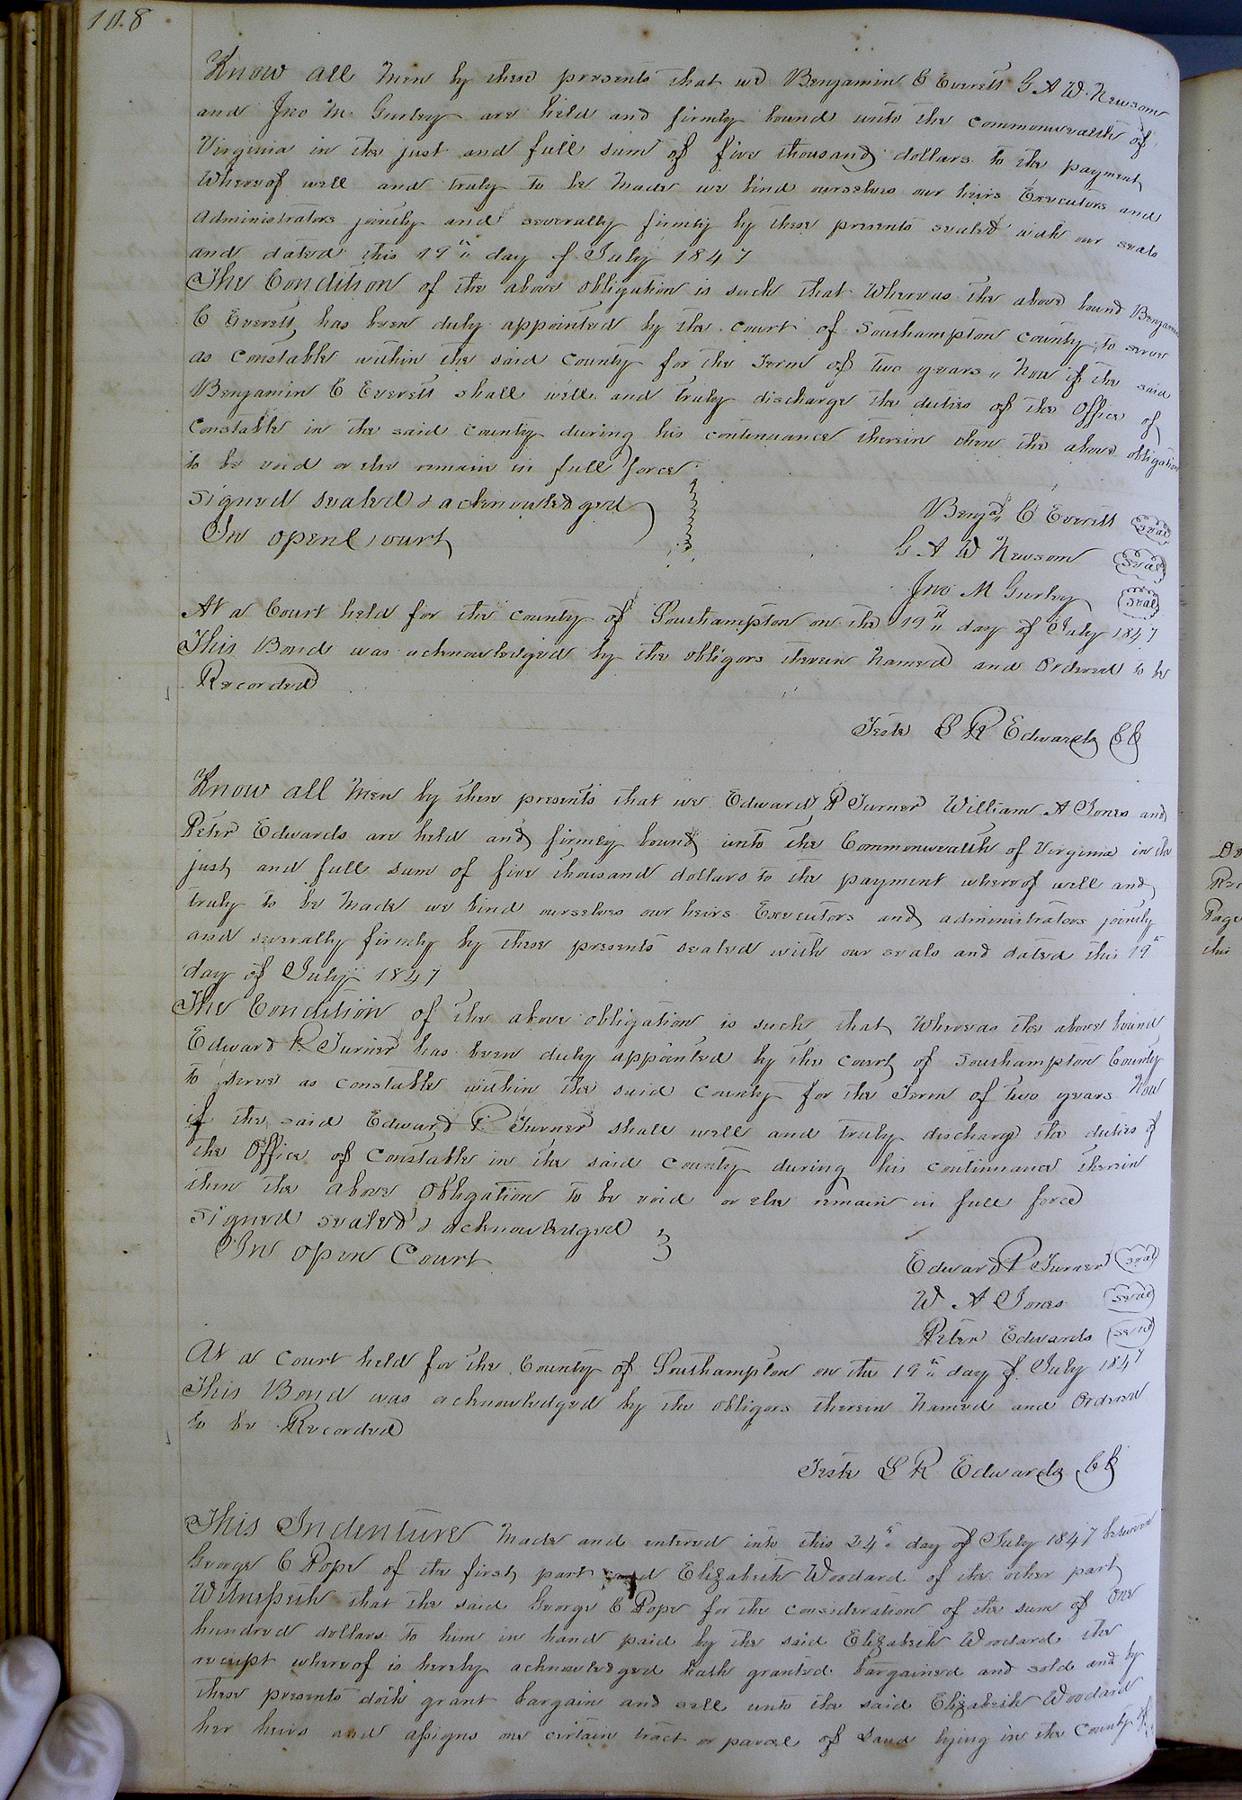 108
Know all Men by these presents that we Benjamin C Everett G A W Newsom
and Jno M Gurley are held and firmly bound unto the commonwealth of
Virginia in the just and full sum of five thousand dollars to the payment
Whereof well and truly to be Made we bind ourselves our heirs Executors and
Administrators jointly and severally firmly by these presents sealed with our seals
and dated this 19th day of July 1847
The Condition of the above obligation is such that Whereas the above bound Benjamin
C Everett, has been duly appointed by the court of Southampton County to serve
as constable within the said County for the Term of two years Now if the said
Benjamin C Everett shall well and truly discharge the duties of the Office of
Constable in the said county during his continuance therein then the above obligation
to be void or else remain in full force
Signed sealed & acknowledged
In open court
Benja C Everett Seal
G A W Newsom Seal
Jno M Gurley Seal
At a Court held for the county of Southampton on the 19th day of July 1847
This Bond was acknowledged by the obligors therein Named and Ordered to be
Recorded
Teste L R Edwards CC
Know all Men by these presents that we Edward P Turner William A Jones and
Peter Edwards are held and firmly bound unto the Commonwealth of Virginia in the
just and full sum of five thousand dollars to the payment whereof well and
truly to be Made we bind ourselves our heirs Executors and administrators jointly
and severally firmly by these presents sealed with our seals and dated this 19th
day of July 1847
The Condition of the above obligation is such that Whereas the above bound
Edward P. Turner has been duly appointed by the court of Southampton County
to serve as constable within the said County for the Term of two years Now
if the said Edward P. Turner shall well and truly discharge the duties of
the Office of Constable in the said county during his continuance therein
then the above Obligation to be void or else remain in full force
Signed sealed & acknowledged
In open Court
Edward P Turner Seal
W A Jones Seal
Peter Edwards Seal
At a court held for the County of Southampton on the 19th day of July 1847
This Bond was acknowledged by the obligors therein Named and Ordered
to be Recorded
Teste L R Edwards CC
This Indenture Made and entered into this 24th day of July 1847 between
George C Pope of the first part and Elizabeth Woodard of the other part
Witnesseth that the said George C Pope for the consideration of the sum of One
hundred dollars to him in hand paid by the said Elizabeth Woodard the
receipt whereof is hereby acknowledged hath granted bargained and sold and by
these presents doth grant bargain and sell unto the said Elizabeth Woodard
her heirs and assigns one certain tract or parcel of Land lying in the County of
Page
this